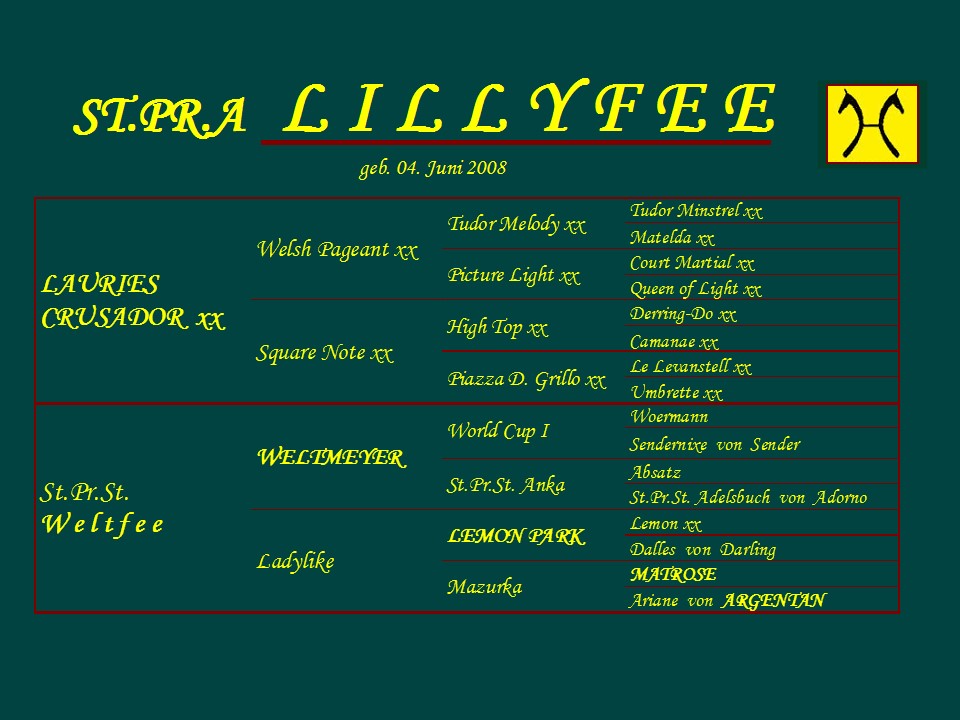 ST.PR.A L I L L Y F E E
geb. 04. Juni 2008
LAURIES
CRUSADOR xx
Welsh Pageant xx
Tudor Melody xx
Tudor Minstrel xx
Matelda xx
Picture Light xx
Court Martial xx
Queen of Light xx
Square Note xx
High Top xx
Derring-Do xx
Camanae xx
Piazza D. Grillo xx
Le Levanstell xx
Umbrette xx
St.Pr.St.
W e l t f e e
WELTMEYER
World Cup I
Woermann
Sendernixe von Sender
St.Pr.St. Anka
Absatz
St.Pr.St. Adelsbuch von Adorno
Ladylike
LEMON PARK
Lemon xx
Dalles von Darling
Mazurka
MATROSE
Ariane von ARGENTAN